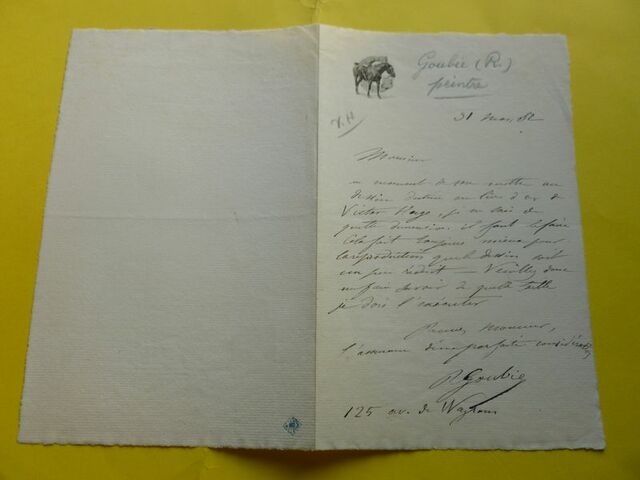 Goubie (R.)
peintre
V. H
31 mars 82
Monsieur
au moment de me mettre au
dessin destiné au livre d'or de
Victor Hugo, je ne sais de
quelle dimension il faut le faire
Cela fait toujours mieux pour
la reproduction que le dessin soit
un peu réduit — Veuillez donc
me faire savoir à quelle taille
je dois l'exécuter
Recevez Monsieur,
l'assurance d'une parfaite considération
R Goubie
125 av. de Wagram